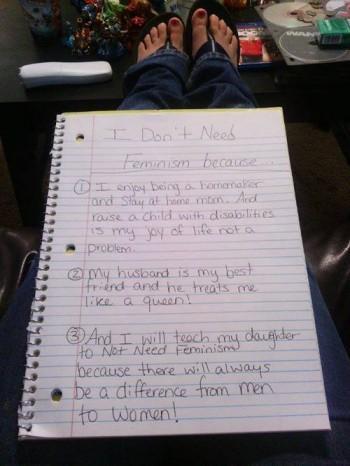 I Don't Need
Feminism because...
① I enjoy being a homemaker
and stay at home mom. And
rause a child with disabilities
is my joy of life not a
problem.
② My husband is my best
friend and he treats me
like a queen!
③ And I will teach my daughter
to Not Need Feminism
because there will always
be a difference from men
to women!